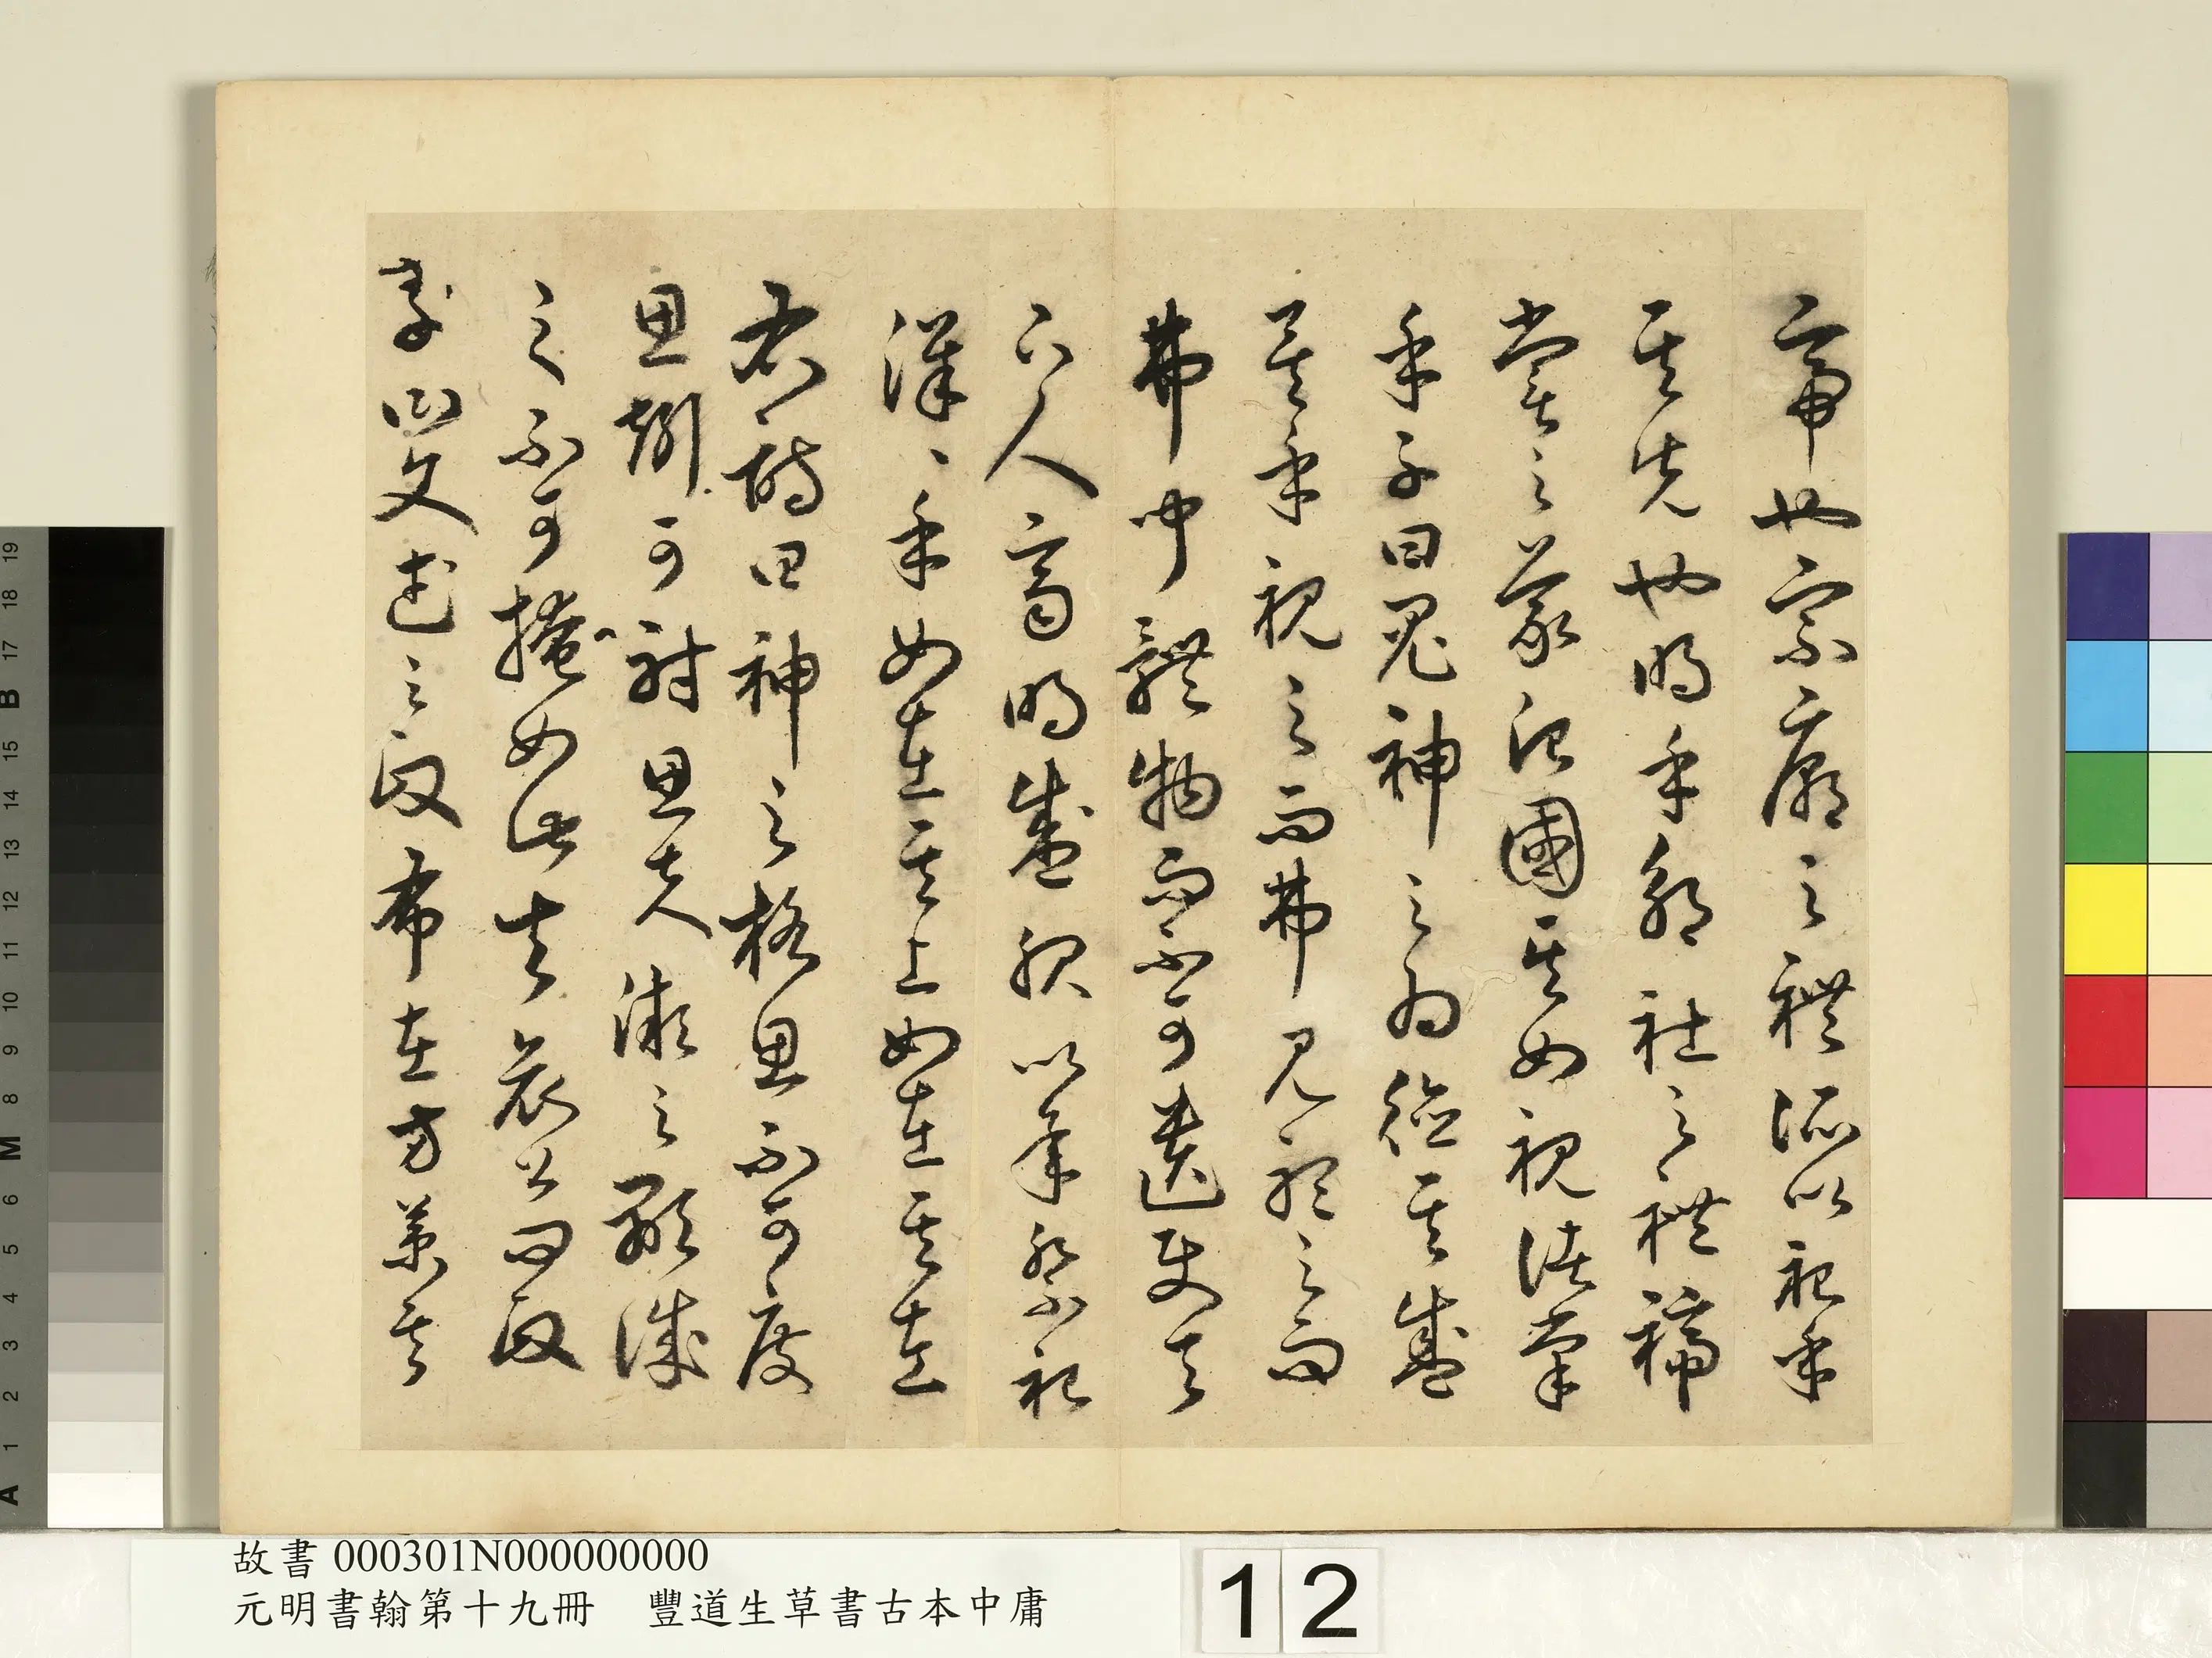 帝也宗廟之禮所以祀乎
其先也明乎郊社之禮禘
嘗之義治國其如視諸掌
乎子曰鬼神之為德其盛
矣乎視之而弗見聽之而
弗聞體物而不可遺使天
下人齊明盛服以承祭祀
洋、乎如在其上如在其左
右詩曰神之格思不可度
思矧可射思夫微之顯誠
之不可掩如此夫哀公問政
曰文武之政布在方策其
故書 000301N000000000
元明書翰第十九冊 豐道生草書古本中庸
12
A 1 2 3 4 5 6 M 8 9 10 11 12 13 14 15 B 17 18 19